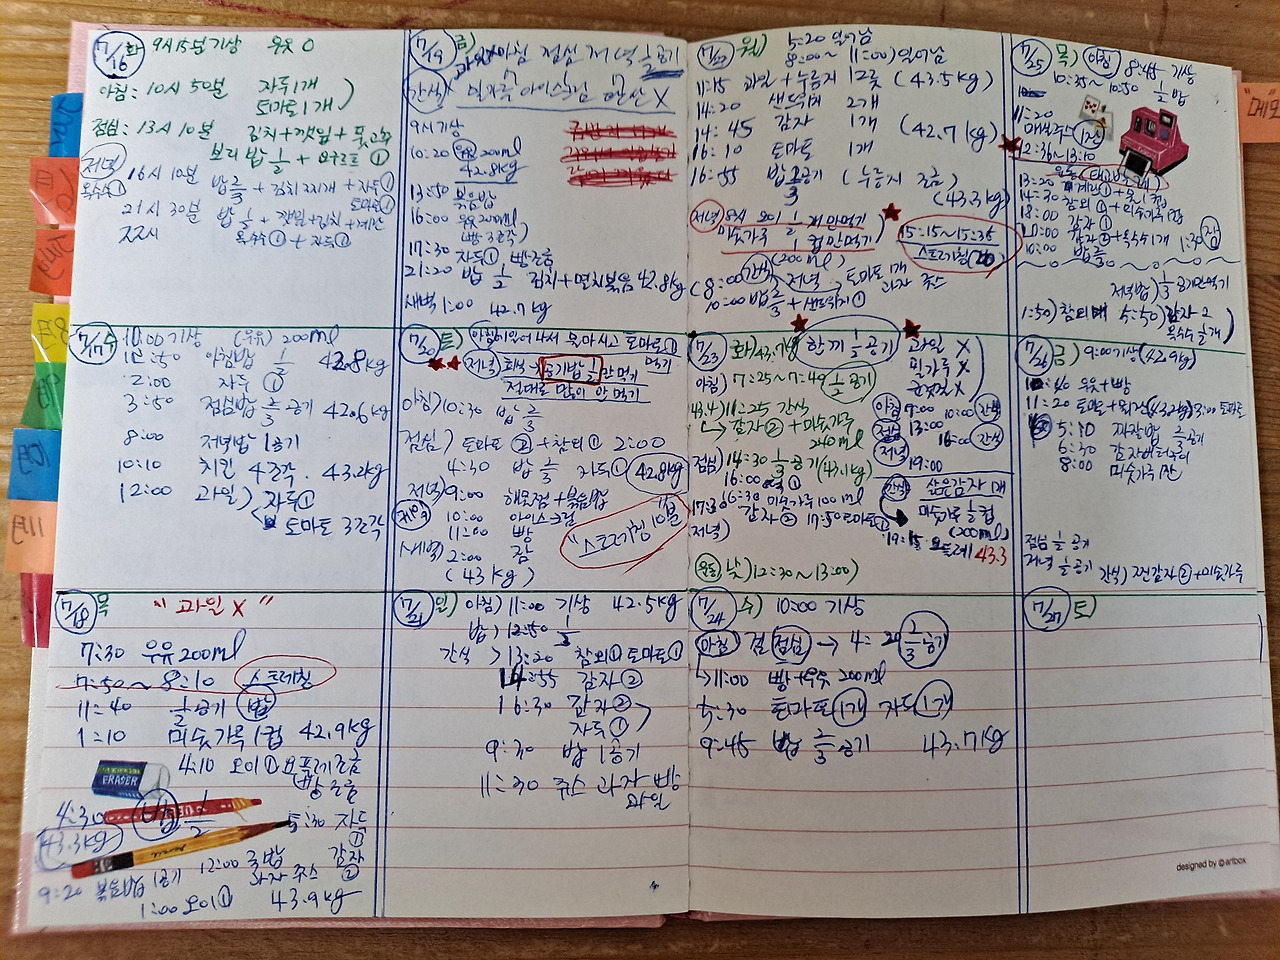 7/16 화 9시15분기상 우유 0
아침: 10시 50분 자두1개
토마토1개)
점심: 13시 10분 김치+깻잎+풋고추
보리밥 1/2 + 요구르트 ①
저녁
옥수수① 16시 10분 밥 2/3 + 김치찌개 + 자두①
토마토①
21시 30분 밥 1/2 + 깻잎+김치+계란
옥수수① + 자두①
7/17 수 10:00 기상 (우유) 200ml
10:50 아침밥 1/2 42.8kg
2:00 자두 ①
3:50 점심밥 2/3 공기 42.6kg
8:00 저녁밥 1공기
10:10 치킨 4조각. 43.2kg
12:00 과일) 자두①
토마토 3조각
7/18 목 "과일 X"
7:30 우유 200ml
7:50~8:10 스트레칭
11:40 1/2공기 밥
1:10 미숫가루 1컵 42.9kg
4:10 오이① 요플레 조금
빵 조금
ERASER
4:30 밥 1/2 5:30 자두
43.3kg ①
12:00 국밥 감자
9:20 볶음밥 1공기 과자 주스 ②
1:00 오이① 43.9kg
7/19 금) 아침 점심 저녁 1/2공기
간식
9시기상
10:20 우유 200ml
42.8kg
13:50 볶음밥
16:00 우유 200ml
(빵 3조각)
17:30 자두① 빵 조금
21:20 밥 1/2 김치+멸치볶음 42.8kg
새벽 1:00 42.7kg
7/20 토) 아침) 일어나서 물 마시고 토마토①
먹기
저녁) 공기밥 1/2만 먹기
절대로 많이 안 먹기
아침) 10:30 밥 2/3
점심) 토마토 ② + 참외① 2:00
4:30 밥 2/3 자두① 42.8kg
저녁) 9:00 해물점+볶음밥
10:00 아이스크림 "스트레칭 10분"
11:00 빵
새벽) 2:00 잠
(43kg)
7/21 일) 아침) 11:00 기상 42.5kg
밥) 12:50 1/2
간식 > 13:20 참외① 토마토①
14:55 감자②
16:30 감자②
자두①
9:30 밥 1공기
11:30 쥬스 과자 빵
과일
7/22 월) 5:20 일어남
8:00~11:00) 일어남
11:15 과일+누룽지 1그릇 (43.5kg)
14:20 샌드위치 2개
14:45 감자 1개 (42.7kg)
16:10 토마토 1개
16:55 밥 2/3공기 (누룽지 조금)
(43.3kg)
저녁) 8시 오이 1/2개만먹기
미숫가루 1/2컵만먹기
(200ml)
15:15~15:35
스트레칭(20)
8:00 간식 저녁 토마토 1개
과자 쥬스
10:00 밥 2/3 + 샌드위치①
7/23 화) 43.7kg 한끼 1/2공기 과일 X
밀가루 X
군것질 X
아침) 7:25~7:49 1/2공기
43.4) 11:25 간식
감자② + 미숫가루
240ml
점심) 14:30 1/3공기 (43.1kg)
16:30 미숫가루 100ml
17:30 감자② 17:50 토마토①
저녁)
아침 9:00 10:00 간식
점심 13:00
16:00 간식
저녁 19:00
간식 삶은감자 1개
미숫가루 1/2컵
(200ml)
19:15 요플레 43.3
운동 낮) 12:30~13:00)
7/24 수) 10:00 기상
아침) 겸 점심 → 4:20 2/3공기
11:00 빵+우유 200ml
5:30 토마토 1개 자두 1개
9:45 밥 2/3공기 43.7kg
7/25 목) 아침 8:45 기상
10:35~10:50 1/2밥
11:20
12:36~13:10
13:20 계란①
14:30 참외① + 미숫가루 1잔
18:00 감자①
감자②+옥수수1개 1:30 잠
10:00 밥 2/3
저녁밥) 1/3공기만먹기
1:50) 참외1개 5:50) 감자 2
옥수수 1개
7/26 금) 9:00기상(42.9kg)
10:40 우유+빵
11:20 토마토
5:10 짜장밥 2/3공기
6:30
8:00 미숫가루 1잔
점심 1/2공기
저녁 1/2공기 간식) 감자②+미숫가루
7/27 토)
designed by @artbox